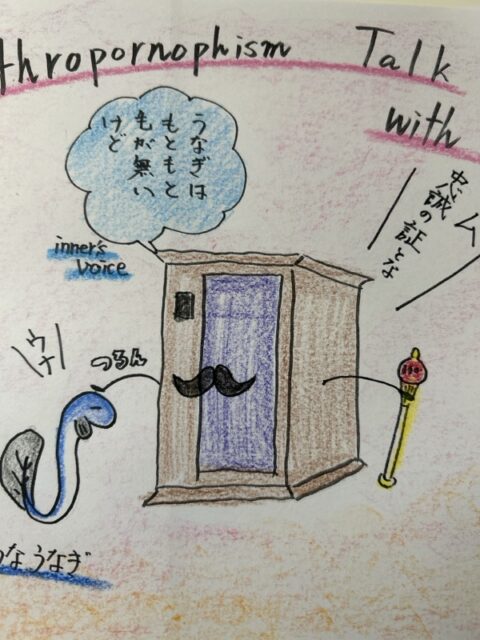 thropornophism Talk
with
うなぎは
もともと
もが無い
けど
inner's
voice
ム
忠誠の証とな
ウナ
つるん
なうなぎ